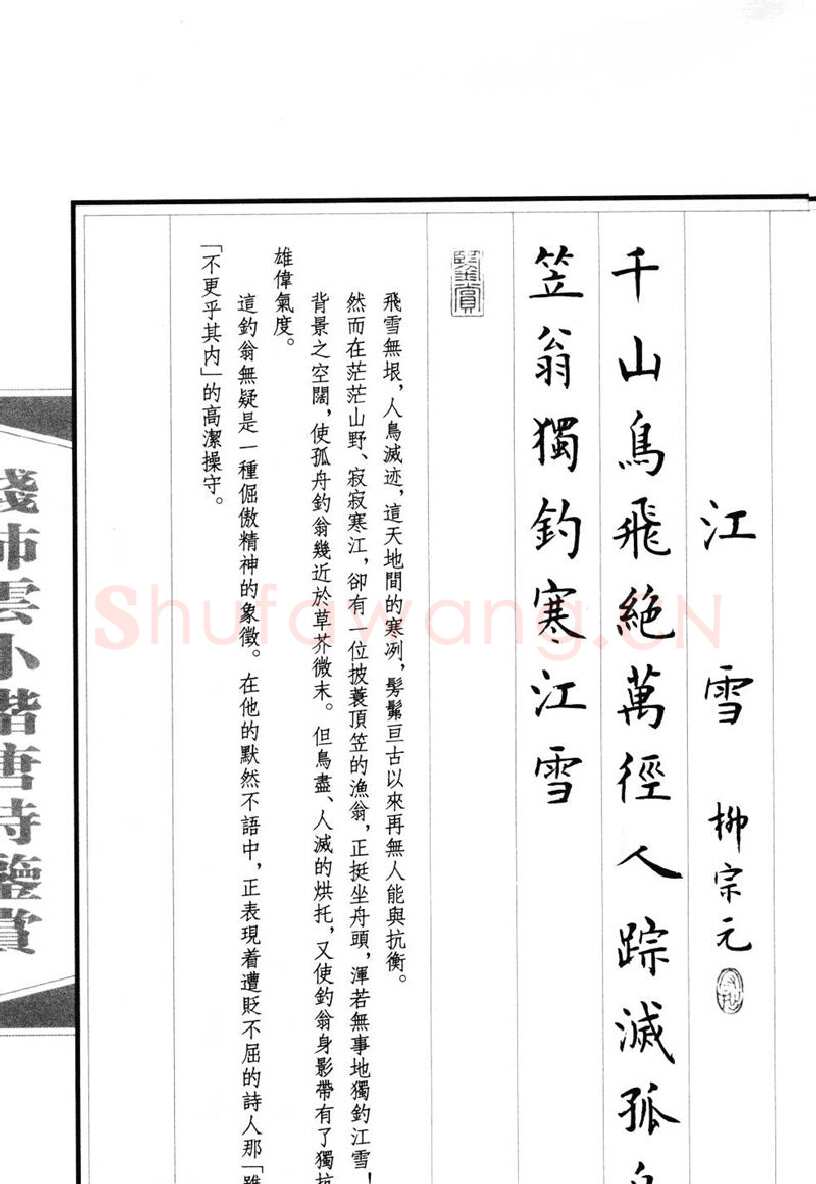 江雪 柳宗元
千山鳥飛絕萬徑人踪滅孤
笠翁獨釣寒江雪
鑒賞
飛雪無垠，人鳥滅迹，這天地間的寒冽，髣髴亘古以來再無人能與抗衡。
然而在茫茫山野、寂寂寒江，卻有一位披蓑頂笠的漁翁，正挺坐舟頭，渾若無事地獨釣江雪！
背景之空闊，使孤舟釣翁幾近於草芥微末。但鳥盡、人滅的烘托，又使釣翁身影帶有了獨抗
雄偉氣度。
這釣翁無疑是一種倔傲精神的象徵。在他的默然不語中，正表現着遭貶不屈的詩人那「雖
「不更乎其内」的高潔操守。
錢沛雲小楷唐詩鑒賞
Shufawang.CN